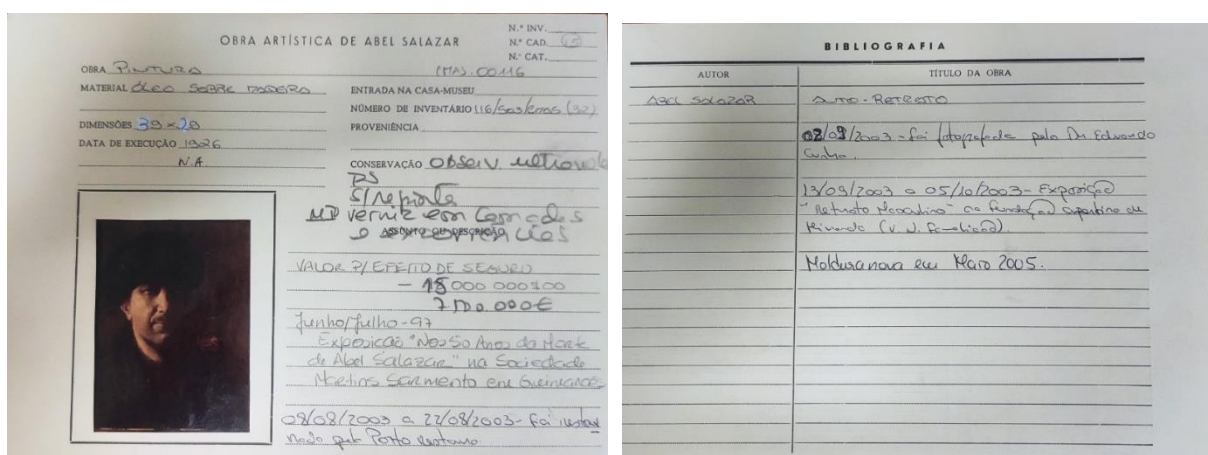 OBRA ARTÍSTICA DE ABEL SALAZAR
N.º INV.
N.º CAD. 65
N.º CAT.
OBRA PINTURA
(MAS.00116
MATERIAL ÓLEO SOBRE MADEIRA
ENTRADA NA CASA-MUSEU
NÚMERO DE INVENTÁRIO 116/ (32)
DIMENSÕES 39 x 29
PROVENIÊNCIA
DATA DE EXECUÇÃO 1926
N.A.
CONSERVAÇÃO Observ.
S/
MP verniz em camadas
e
ASSUNTO OU DESCRIÇÃO
VALOR P/ EFEITO DE SEGURO
- 15 000 000$00
Junho/Julho-97
Exposição "Nos 50 Anos da Morte
de Abel Salazar" na Sociedade
Martins Sarmento em Guimarães
08/08/2003 a 22/08/2003- foi restau
rado pela Porto Restauro.
BIBLIOGRAFIA
AUTOR
TÍTULO DA OBRA
ABEL SALAZAR
AUTO-RETRATO
02/09/2003 - foi fotografada pelo Dr Eduardo
Cunha.
13/09/2003 a 05/10/2003- Exposição
"Retrato Masculino" na Fundação Cupertino de
Miranda (V. N. Famalicão).
Moldura nova em Maio 2005.